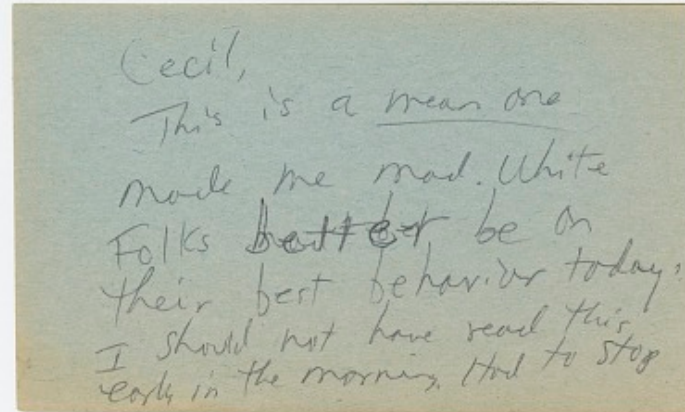 Cecil,
This is a mean one
made me mad. White
Folks better be on
their best behavior today.
I should not have read this
early in the morning. Had to stop